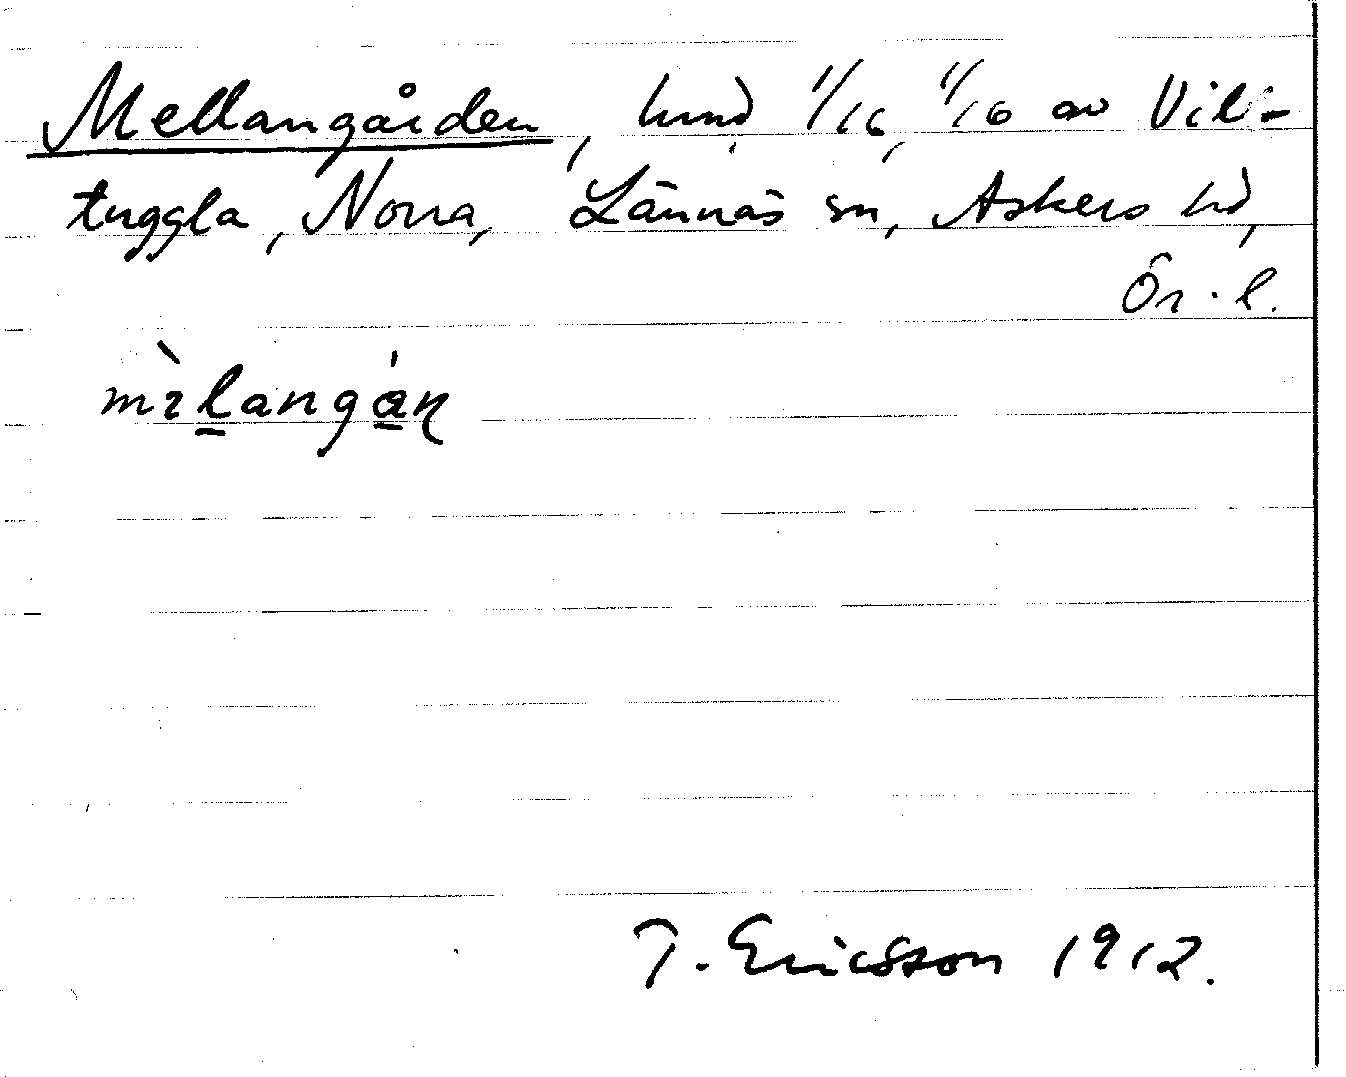 Mellangården, hmd 1/16, 1/16 av Vil-
tuggla, Norra, Lännäs sn, Askers hd,
Ör. l.
mɪ̀langán
T. Ericsson 1912.